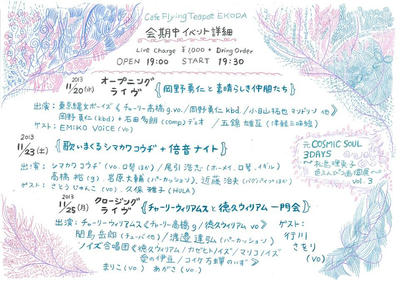 Cafe Flying Teapot EKODA
会期中イベント詳細
Live Charge ¥1,000 + Dring Order
OPEN 19:00 START 19:30
2013
11/20(水) オープニングライヴ《岡野勇仁と素晴らしき仲間たち》
出演：東京緑女ボーイズ《チャーリー高橋 g.vo. / 岡野勇仁 kbd. / 小田山拓也 マンドリン 他》
岡野勇仁 (kbd) + 石田多朗 (comp) デュオ / 五錦 (津軽三味線)
ゲスト：EMIKO VOICE (vo)
2013
11/23(土)《歌いまくるシマカワコウヂ + 倍音ナイト》
出演：シマカワコウヂ (vo. 口琴 ほか) / 尾引浩志 (ホーメイ. 口琴. イギル)
高橋裕 (g) 岩原大輔 (パーカッション) 近藤治夫 (バグパイプ ほか)
ゲスト：さとうじゅんこ (vo). 久保雅子 (HULA)
2013
11/25(月) クロージングライヴ《チャーリーウィリアムスと徳久ウィリアム一門会》
出演：チャーリーウィリアムス《チャーリー高橋 g / 徳久ウィリアム vo》
関島岳郎 (チューバ 他) / 渡邊達弘 (パーカッション)
ノイズ合唱団《徳久ウィリアム / カゼヒトノイズ / マリコノイズ
愛の伊豆 / コイケ万博のいず》
まりこ (vo) あがさ (vo)
ゲスト：
行川
さをり
(vo)
元 COSMIC SOUL
3DAYS
vol. 3